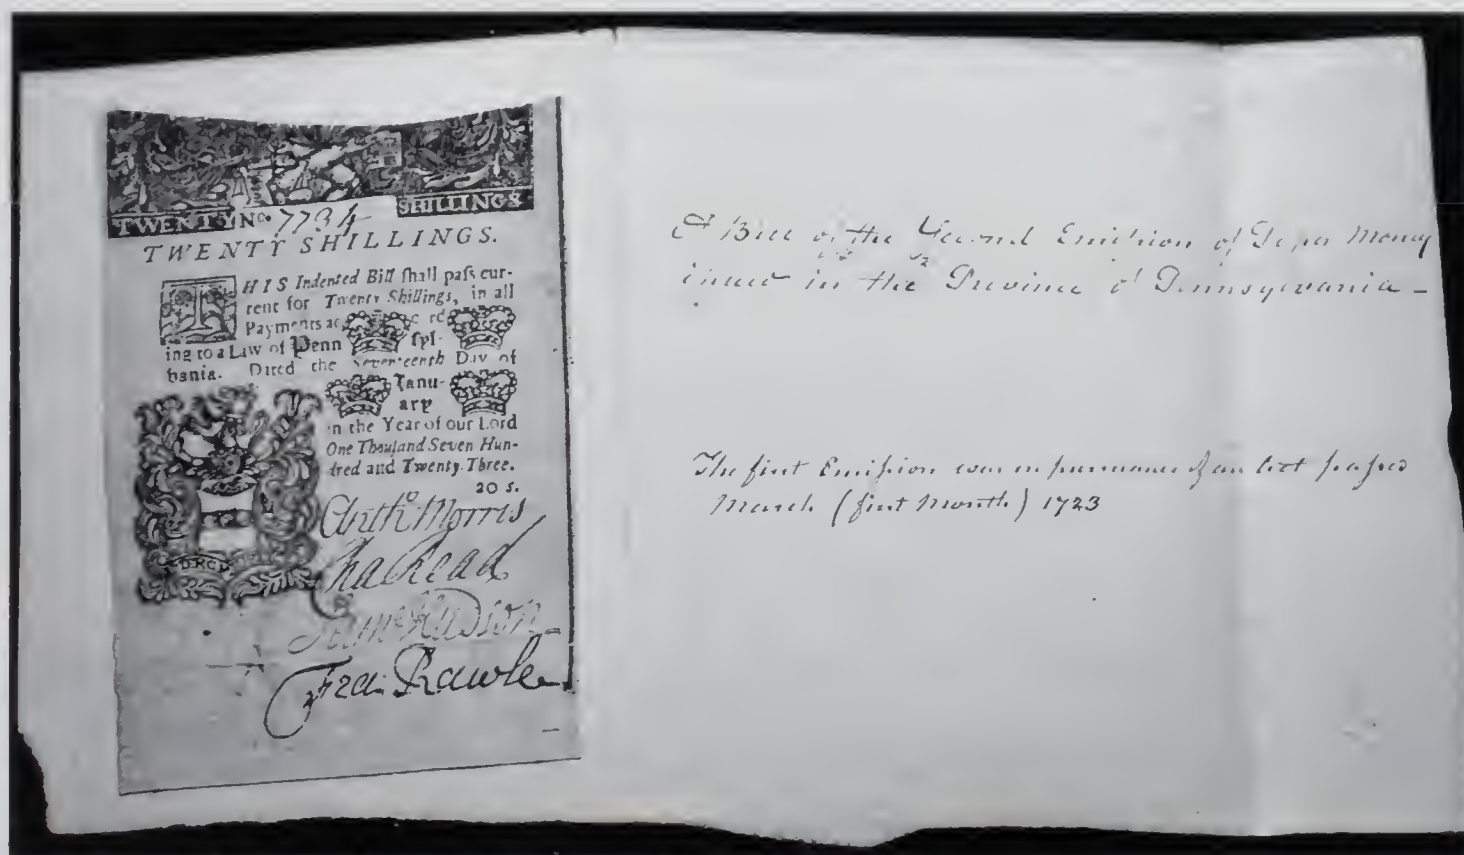 TWENTY No. 7734 SHILLINGS
TWENTY SHILLINGS.
THIS Indented Bill ſhall paſs cur-
rent for Twenty Shillings, in all
Payments
ing to a Law of Penn ſyl-
vania. Dated the Seventeenth Day of
Janu-
ary
in the Year of our Lord
One Thouſand Seven Hun-
dred and Twenty-Three.
20 s.
Antho Morris
Cha Read
Hudson
Fra: Rawle
A Bill of the Second Emiſsion of Paper Money
issued in the Province of Pennsylvania —
The first Emiſsion was in pursuance of an Act paſsed
March (first Month) 1723